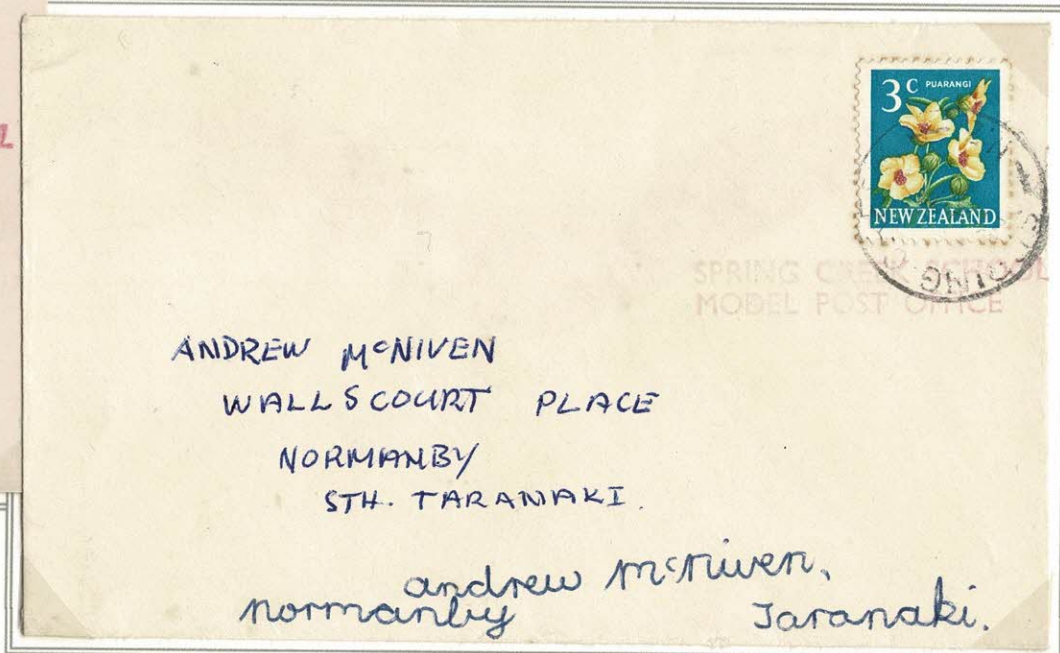 3c PUARANGI
NEW ZEALAND
SPRING CREEK SCHOOL
MODEL POST OFFICE
ANDREW McNIVEN
WALLSCOURT PLACE
NORMANBY
STH. TARANAKI.
andrew mcniven,
normanby Taranaki.